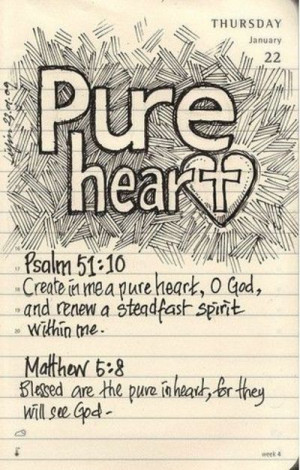 THURSDAY
January
22
Pure
heart
Psalm 51:10
Create in me a pure heart, O God,
and renew a steadfast spirit
within me.
Matthew 5:8
Blessed are the pure in heart, for they
will see God-
week 4